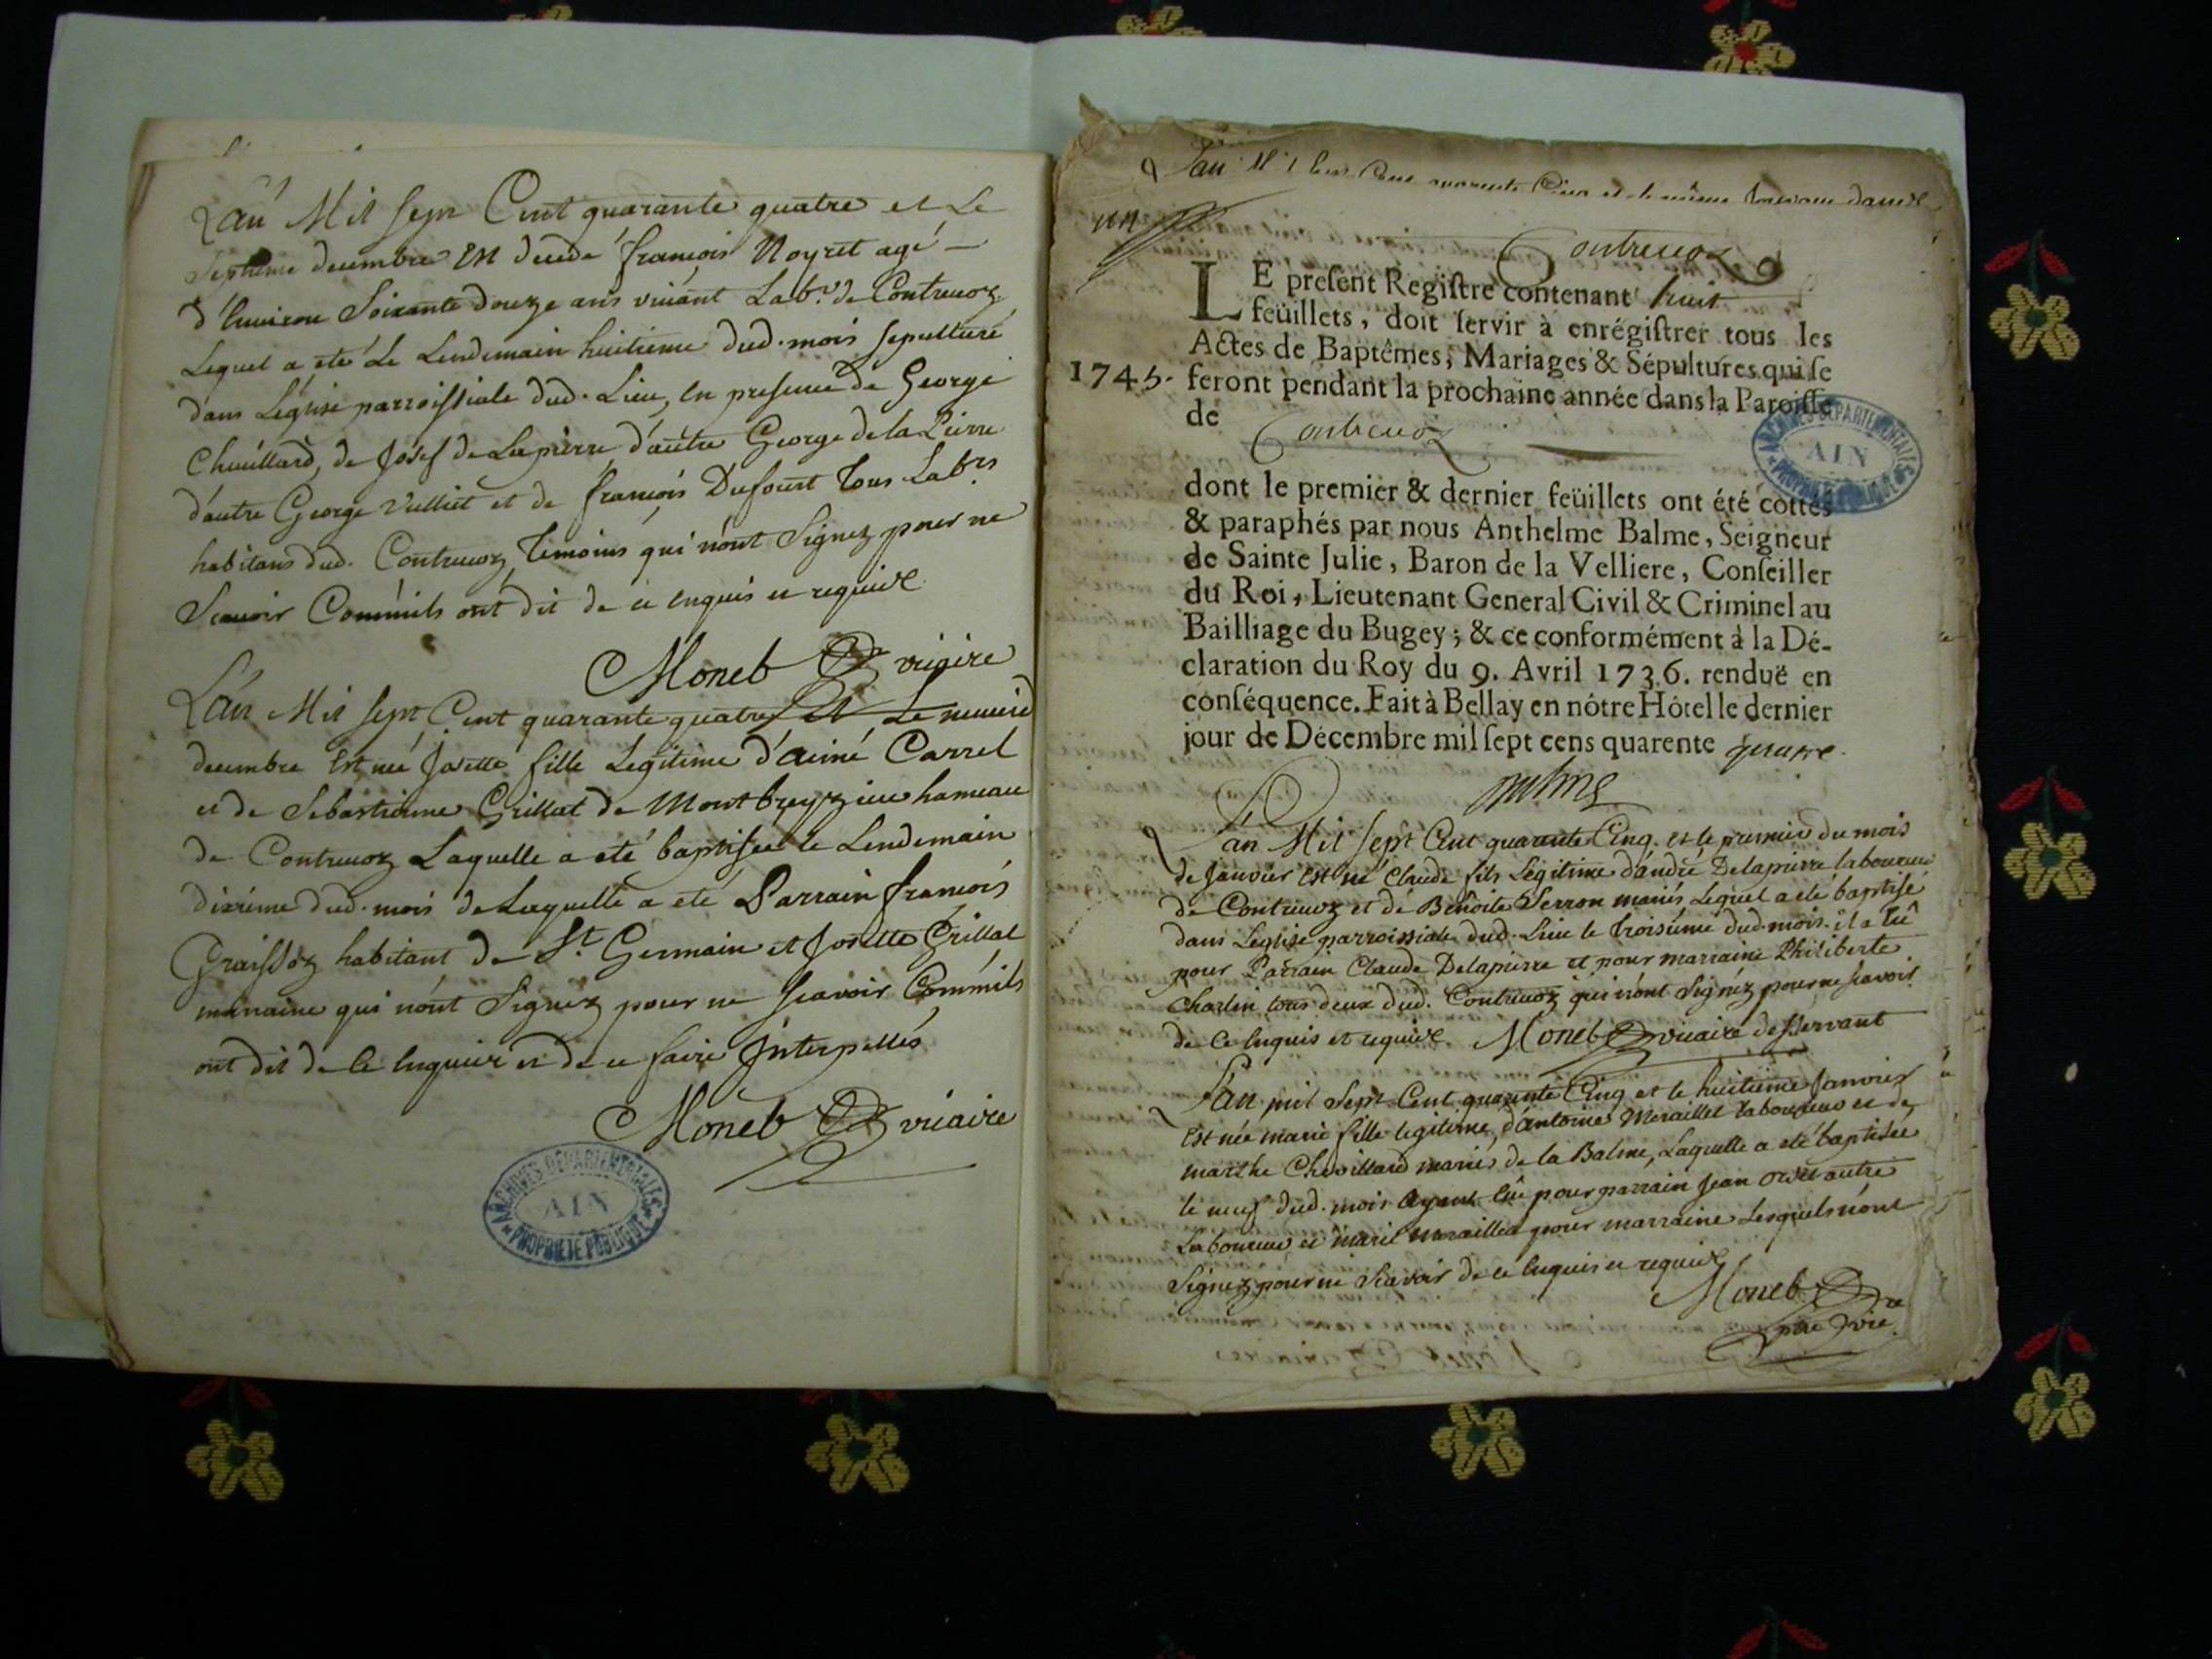 L'an Mil sept Cent quarante quatre et Le
Septieme decembre Est decedé françois Noyret agé
d'Environ Soixante douze ans vivant Lab.r de Contrevoz
Lequel a eté Le Lendemain huitieme dud. mois sepulturé
dans Leglise parroissiale dud. Lieu, En presence de George
Chevillard, de Josef de Lapierre d'autre George de la Pierre
d'autre George Vulliet et de françois Dufourt Tous Lab.rs
habitans dud. Contrevoz, Temoins qui n'ont Signez pour ne
Scavoir Commils ont dit de ce Enquis et requis
Moneb vicaire
L'an Mil sept Cent quarante quatre et Le neuvie
decembre Est neé Josette fille Legitime d'aimé Carrel
et de Sebastienne Grillat de Montbreyzieu hameau
de Contrevoz Laquelle a eté baptisée le Lendemain
dixiéme dud. mois de Laquelle a eté Parrain françois
Graissoz habitant de St Germain et Josette Grillat
marraine qui n'ont Signez pour ne scavoir Commils
ont dit de Ce Enquis et de ce faire Interpellés
Moneb vicaire
ARCHIVES DEPARTEMENTALES
AIN
PROPRIETE PUBLIQUE
L'an Mil sept Cent quarante Cinq et le
un
Contrevoz
LE present Registre contenant huit
feüillets, doit servir à enrégistrer tous les
Actes de Baptêmes, Mariages & Sépultures qui se
1745. feront pendant la prochaine année dans la Paroisse
de Contrevoz
ARCHIVES DEPARTEMENTALES
AIN
PROPRIETE PUBLIQUE
dont le premier & dernier feüillets ont été cottés
& paraphés par nous Anthelme Balme, Seigneur
de Sainte Julie, Baron de la Velliere, Conseiller
du Roi, Lieutenant General Civil & Criminel au
Bailliage du Bugey; & ce conformément à la Dé-
claration du Roy du 9. Avril 1736. renduë en
conséquence. Fait à Bellay en nôtre Hôtel le dernier
jour de Décembre mil sept cens quarente quatre.
Balme
L'an Mil sept Cent quarante Cinq et le premier du mois
de Janvier Est né Claude fils Legitime d'andré Delapierre laboureur
de Contrevoz et de Benoite Serron mariés Lequel a eté baptisé
dans Leglise parroissiale dud. Lieu le troisieme dud. mois. il a Eû
pour Parrain Claude Delapierre et pour marraine Philiberte
Charlin tous deux dud. Contrevoz qui n'ont Signéz pour ne scavoir
de Ce Enquis et requis. Moneb vicaire desservant
L'an mil Sept Cent quarente Cinq et le huitieme Janvier
Est née marie fille legitime d'antoine Meraillet laboureur et de
marthe Chevillard mariés de la Balme, Laquelle a eté baptisée
le neuf dud. mois Ayant Eû pour parrain Jean autre
Laboureur et marie pour marraine Lesquels n'ont
Signez pour ne Scavoir de ce Enquis et requis
Moneb
ptre vic